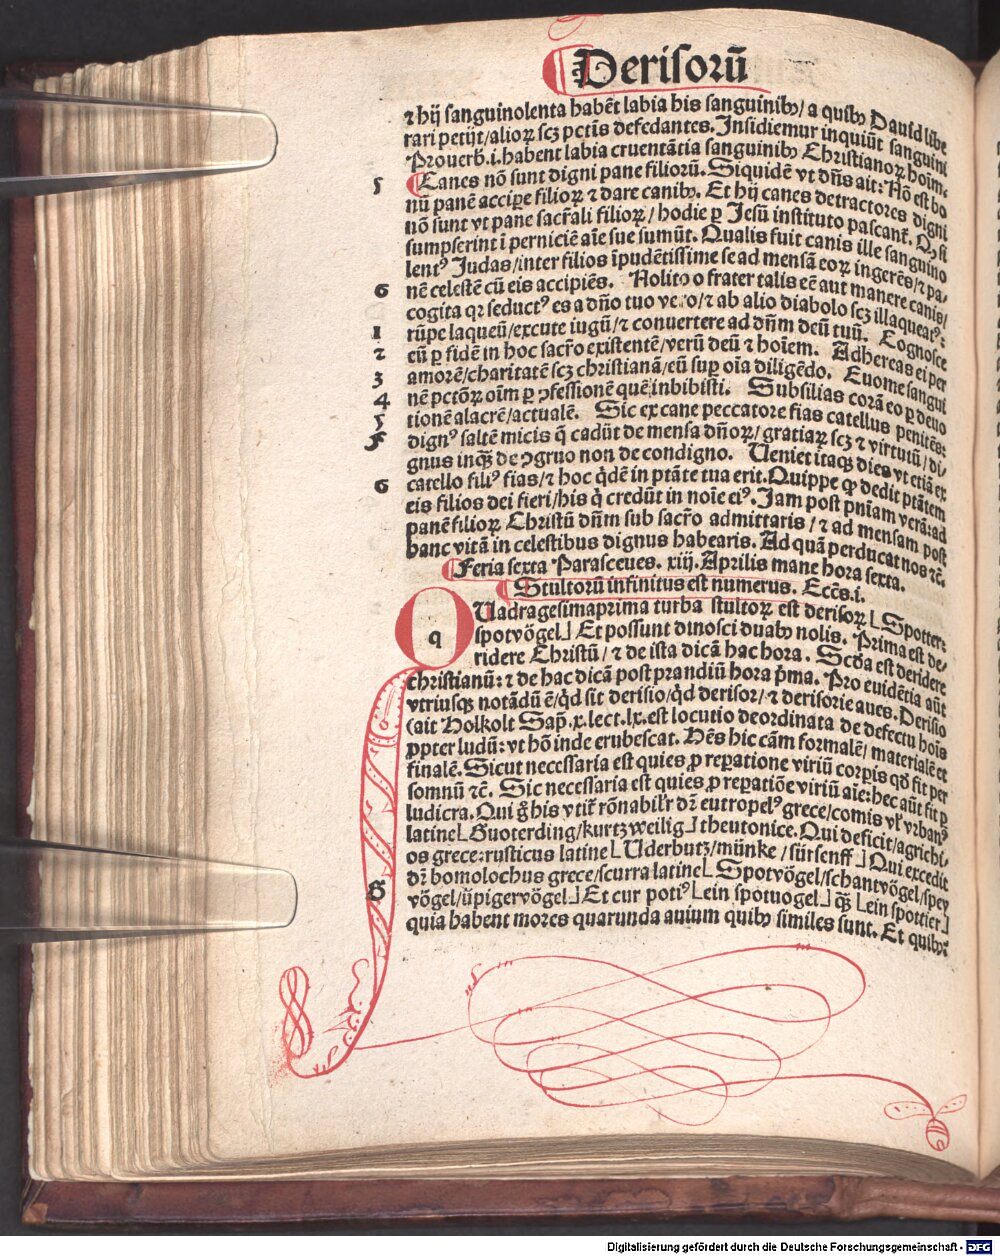 Derisorū
⁊ hij sanguinolenta habēt labia his sanguinibꝫ/ a quibꝫ Dauid libe
rari petijt/alioꝝ scꝫ pctīs defedantes. Insidiemur inquiūt sanguini
Prouerb̄.i.habent labia cruentātia sanguinibꝫ Christianoꝝ hoīm.
5 Canes nō sunt digni pane filiorū. Siquidē vt dn̄s ait: Hō est bo
nū panē accipe filioꝝ ⁊ dare canibꝫ. Et hij canes detractores digni
nō sunt vt pane sacr̄ali filioꝝ/ hodie ꝑ Jesū instituto pascant̄. Qꝫ si
sumpserint ī perniciē aīe sue sumūt. Qualis fuit canis ille sanguino
lentꝰ Judas/inter filios īpudētissime se ad mensā eoꝝ ingerēs/⁊ pa-
6 nē celestē cū eis accipiēs. Nolito o frater talis eē aut manere canis/
cogita qꝛ seductꝰ es a dn̄o tuo vero/⁊ ab alio diabolo scꝫ illaqueatꝰ:
1 rūpe laqueū/excute iugū/⁊ conuertere ad dn̄m deū tuū. Cognosce
2 eū ꝑ fidē in hoc sacr̄o existentē/verū deū ⁊ hoīem. Adhereas ei per
3 amorē/charitatē scꝫ christianā/eū suꝑ oīa diligēdo. Euome sangui
4 nē pctōꝝ oīm ꝑ ꝯfessionē quē inbibisti. Subsilias corā eo ꝑ deuo
5 tionē alacrē/actualē. Sic ex cane peccatore fias catellus penitēs:
F dignꝰ saltē micis q̄ cadūt de mensa dn̄oꝝ/ gratiaꝝ scꝫ ⁊ virtutū/ di
gnus inqꝫ de ꝯgruo non de condigno. Ueniet itaqꝫ dies vt etiā ex
6 catello filiꝰ fias/ ⁊ hoc q̇dē in ptāte tua erit. Quippe qꝫ dedit ptātem
eis filios dei fieri/his q̇ credūt in noīe eiꝰ. Jam post pn̄iam verā: ad
panē filioꝝ Christū dn̄m sub sacr̄o admittaris / ⁊ ad mensam post
hanc vitā in celestibus dignus habearis. Ad quā perducat nos ⁊c̄.
Feria sexta Parasceues. xiij. Aprilis mane hora sexta.
Stultorū infinitus est numerus. Eccēs.i.
q QUadragesimaprima turba stultoꝝ est derisoꝝ ⌊Spotter:
spotvögel⌋ Et possunt dinosci duabꝫ nolis. Prima est de-
ridere Christū/ ⁊ de ista dicā hac hora. Scḋa est deridere
christianū: ⁊ de hac dicā post prandiū hora p̄ma. Pro euidētia aūt
vtriusqꝫ notādū ē/q̇d sit derisio/q̇d derisor/⁊ derisorie aues. Derisio
(ait Holkolt Sap̄.x.lect.lx. est locutio deordinata de defectu hoīs
ꝓpter ludū: vt hō inde erubescat. Hēs hic cām formalē/ materialē et
finalē. Sicut necessaria est quies ꝓ repatione viriū corpis qḋ fit per
somnū ⁊c̄. Sic necessaria est quies ꝓ repatiōe viriū aīe: hec aūt fit ꝑ
ludicra. Qui g̊ his vtit̄ rōnabilr̄ dr̄ eutropelꝰ grece/comis vl̄ vrbanꝰ
latine⌊Guoterding/kurtzweilig⌋ theutonice. Qui deficit/agrichi-
os grece: rusticus latine⌊Uderbutz/münke/sürsenff⌋ Qui excedit
dr̄ bomolochus grece/scurra latine⌊Spotvögel/schantvögel/spey
G vögel/üpigervögel⌋ Et cur potiꝰ ⌊ein spotuogel⌋ qꝫ ⌊ein spottier⌋
quia habent mores quarunda auium quibꝫ similes sunt. Et quibꝫ:
Digitalisierung gefördert durch die Deutsche Forschungsgemeinschaft - DFG